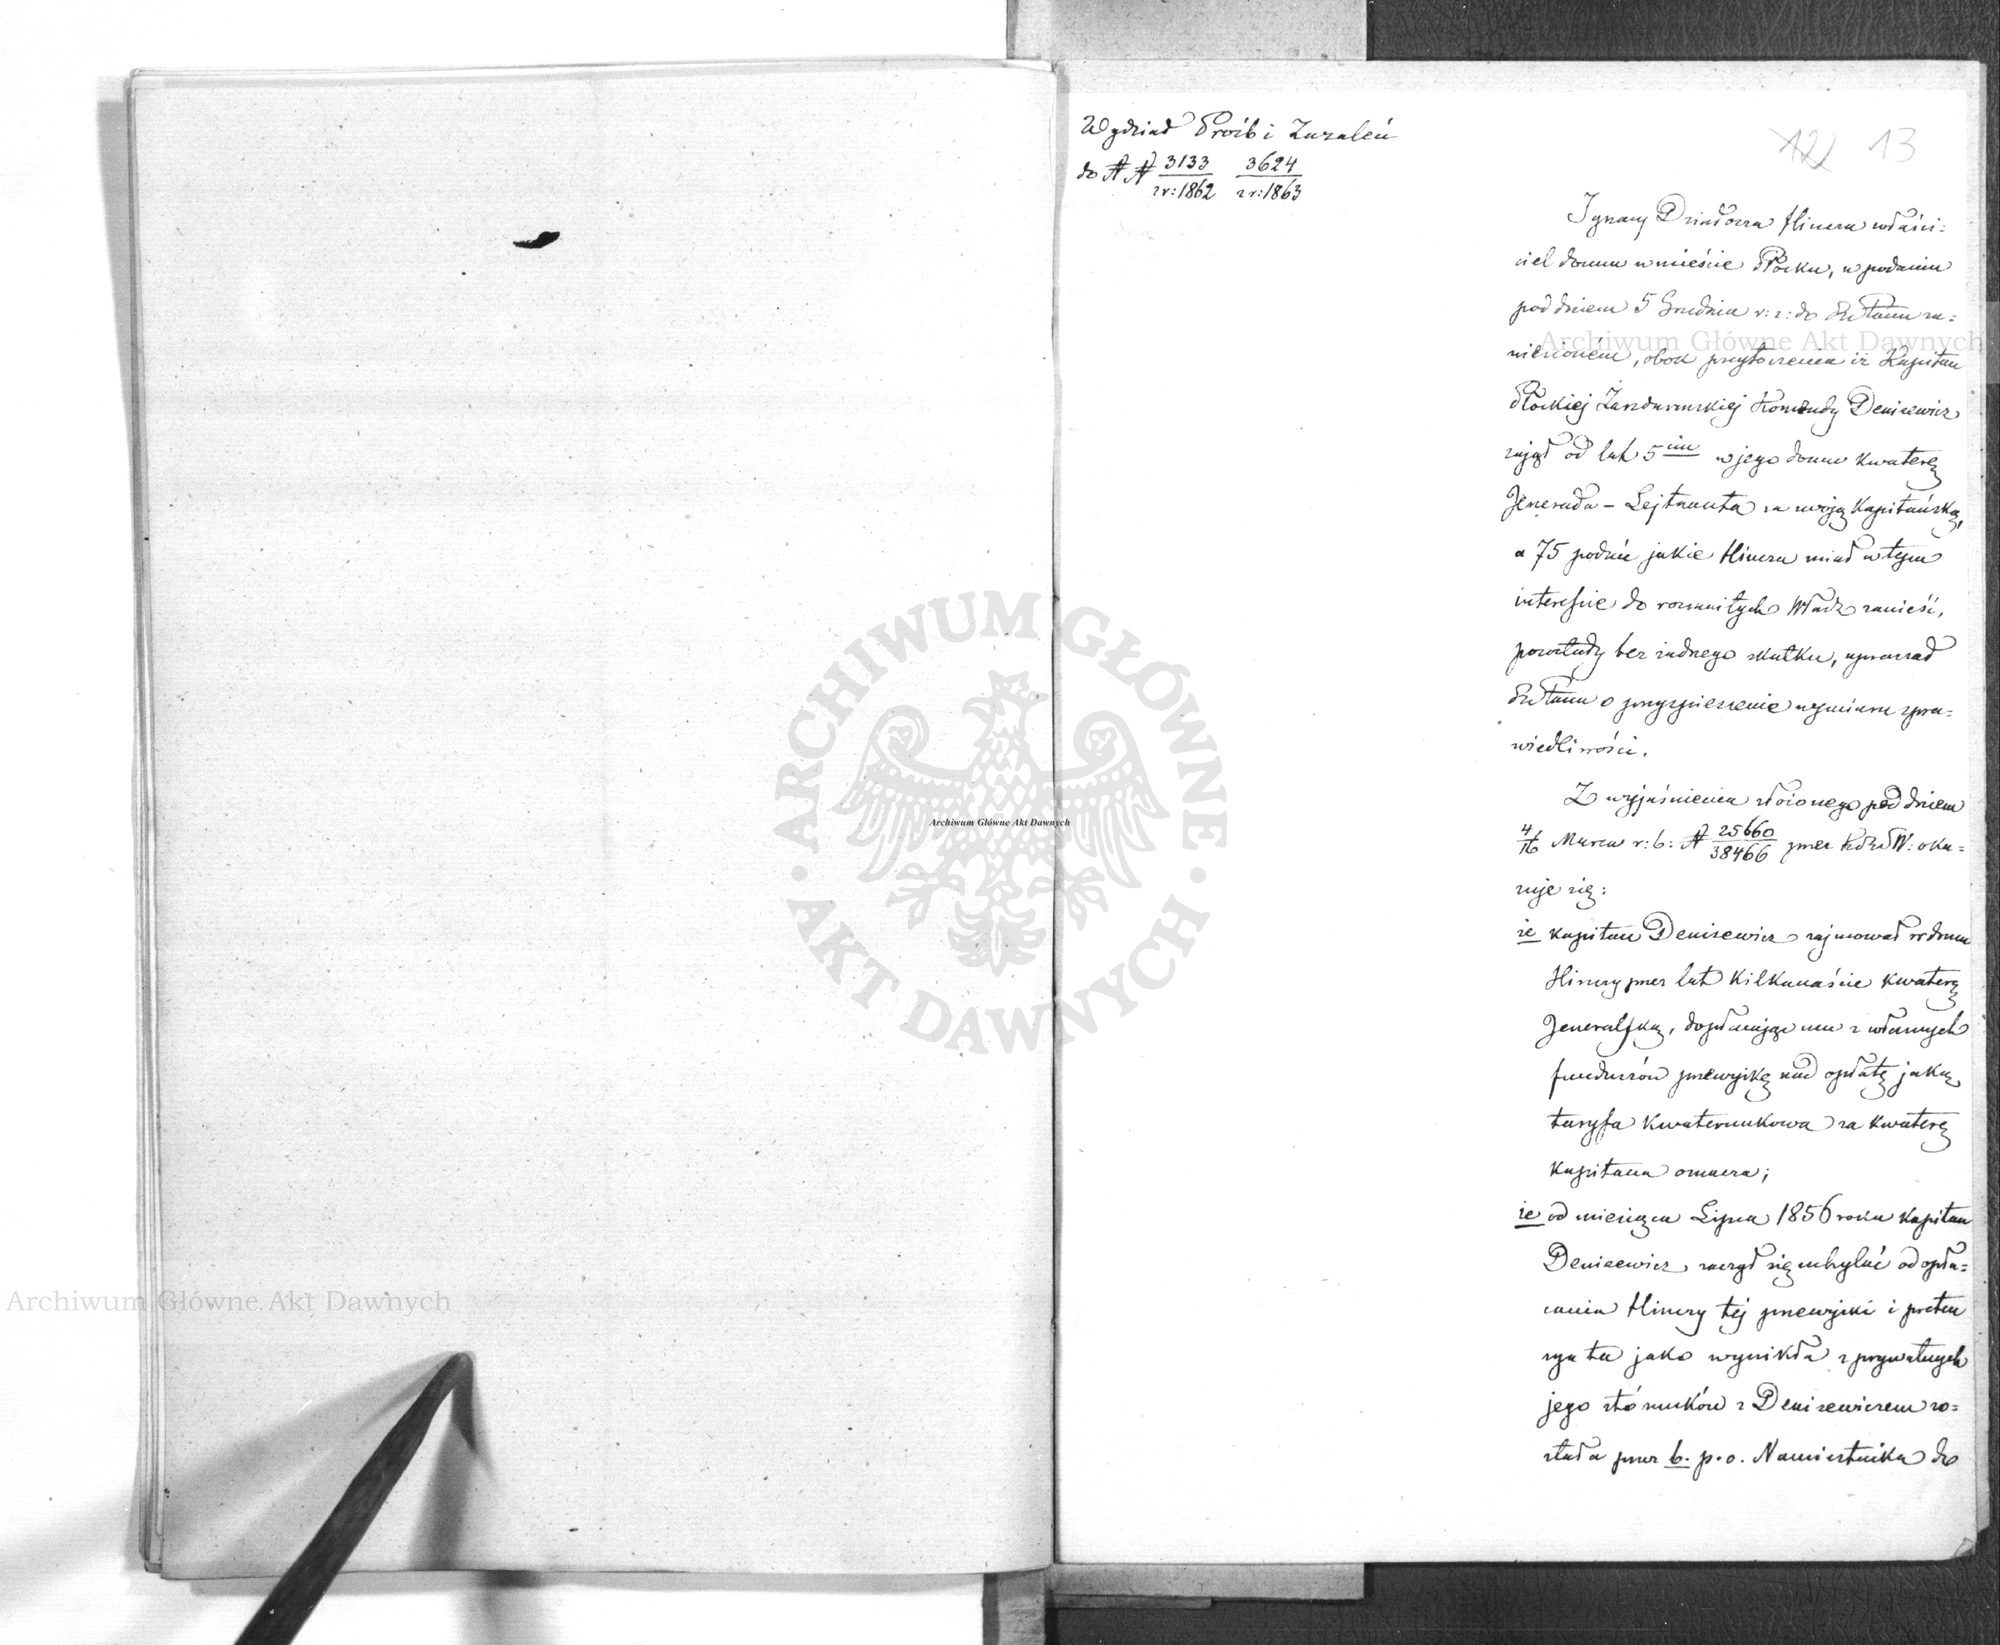 Wydział Próśb i Zażaleń
do NN 3133/z r: 1862 3624/z r: 1863
12 13
Ignacy Dziadosza Hincza właści=
ciel domu w mieście Płocku, w podaniu
pod dniem 5 Grudnia r: z: do Tronu za=
niesionem, obok przytoczenia iż Kapitan
Płockiej Żandarmskiej Komendy Denisewicz
zajął od lat 5ciu w jego domu kwaterę
Jenerała-Lejtnanta za swoją Kapitańską,
a 75 podań jakie Hincza miał w tym
interesie do rozmaitych Władz zanieść,
pozostały bez żadnego skutku, upraszał
Tronu o przyspieszenie wymiaru spra=
wiedliwości.
Z wyjaśnienia złożonego pod dniem
4/16 Marca r: b: N 25660/38466 przez KRSW: oka=
zuje się:
że kapitan Denisewicz zajmował w domu
Hinczy przez lat kilkanaście kwaterę
Jeneralską, dopłacając mu z własnych
funduszów przewyżkę nad opłatę jaką
taryfa kwaterunkowa za kwaterę
kapitana oznacza;
że od miesiąca Lipca 1856 roku kapitan
Denisewicz, zaczął się uchylać od opła=
cania Hinczy tej przewyżki i preten
sya ta jako wynikła z prywatnych
jego stósunków z Denisewiczem zo=
stała przez b. p.o. Namiestnika do
Archiwum Główne Akt Dawnych
Archiwum Główne Akt Dawnych
Archiwum Główne Akt Dawnych
ARCHIWUM GŁÓWNE · AKT DAWNYCH ·